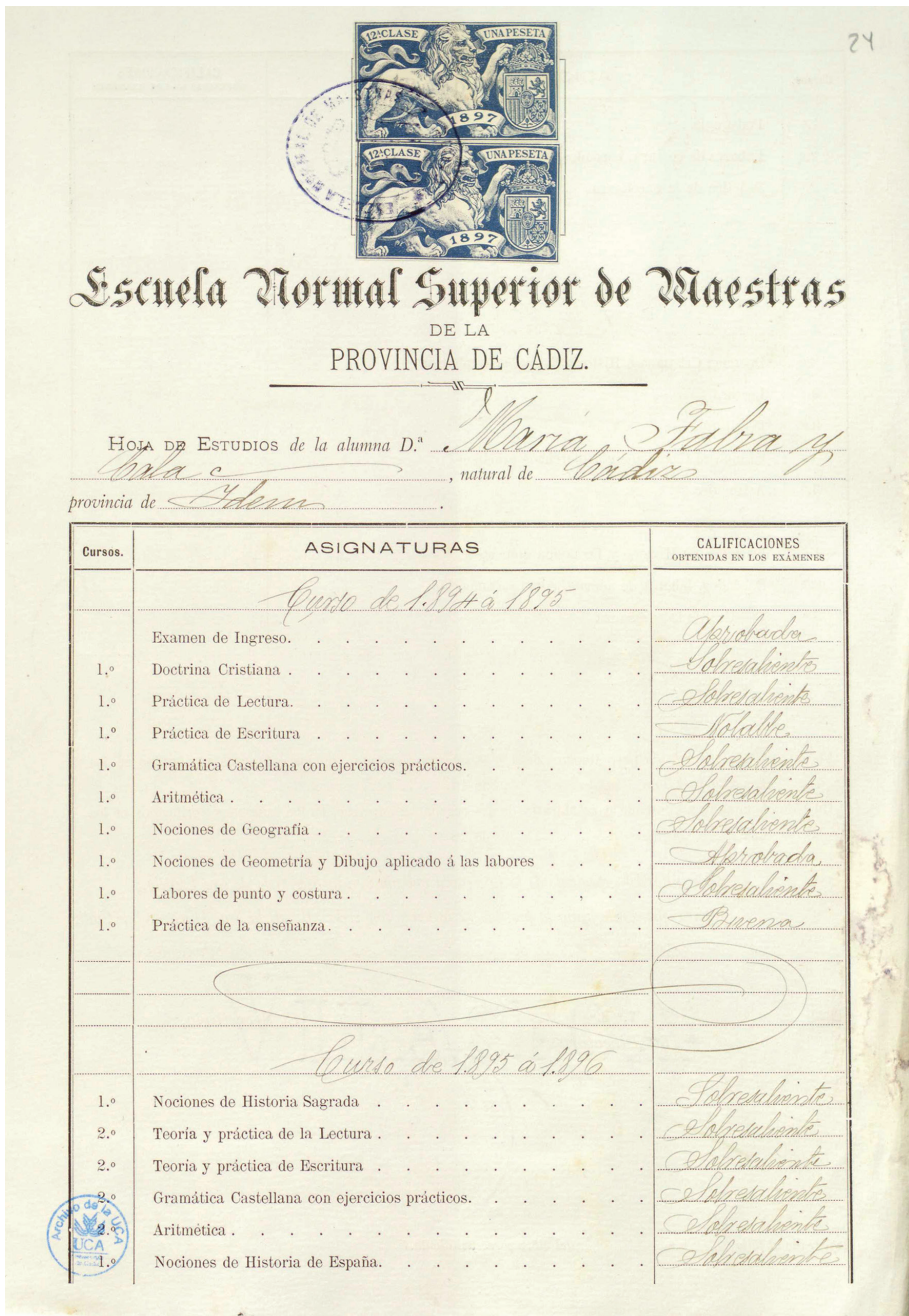 24
12ª CLASE UNA PESETA
1897
12ª CLASE UNA PESETA
1897
Escuela Normal Superior de Maestras
DE LA
PROVINCIA DE CÁDIZ.
HOJA DE ESTUDIOS de la alumna D.ª María Fabra y
Cala, natural de Cádiz
provincia de Idem.
Cursos. ASIGNATURAS CALIFICACIONES OBTENIDAS EN LOS EXÁMENES
Curso de 1.894 á 1895
Examen de Ingreso. Aprobada
1.º Doctrina Cristiana. Sobresaliente
1.º Práctica de Lectura. Sobresaliente
1.º Práctica de Escritura. Notable
1.º Gramática Castellana con ejercicios prácticos. Sobresaliente
1.º Aritmética. Sobresaliente
1.º Nociones de Geografía. Sobresaliente
1.º Nociones de Geometría y Dibujo aplicado á las labores. Aprobada
1.º Labores de punto y costura. Sobresaliente
1.º Práctica de la enseñanza. Buena
Curso de 1.895 á 1.896
1.º Nociones de Historia Sagrada. Sobresaliente
2.º Teoría y práctica de la Lectura. Sobresaliente
2.º Teoría y práctica de Escritura. Sobresaliente
2.º Gramática Castellana con ejercicios prácticos. Sobresaliente
2.º Aritmética. Sobresaliente
1.º Nociones de Historia de España. Sobresaliente
Archivo de la UCA
UCA